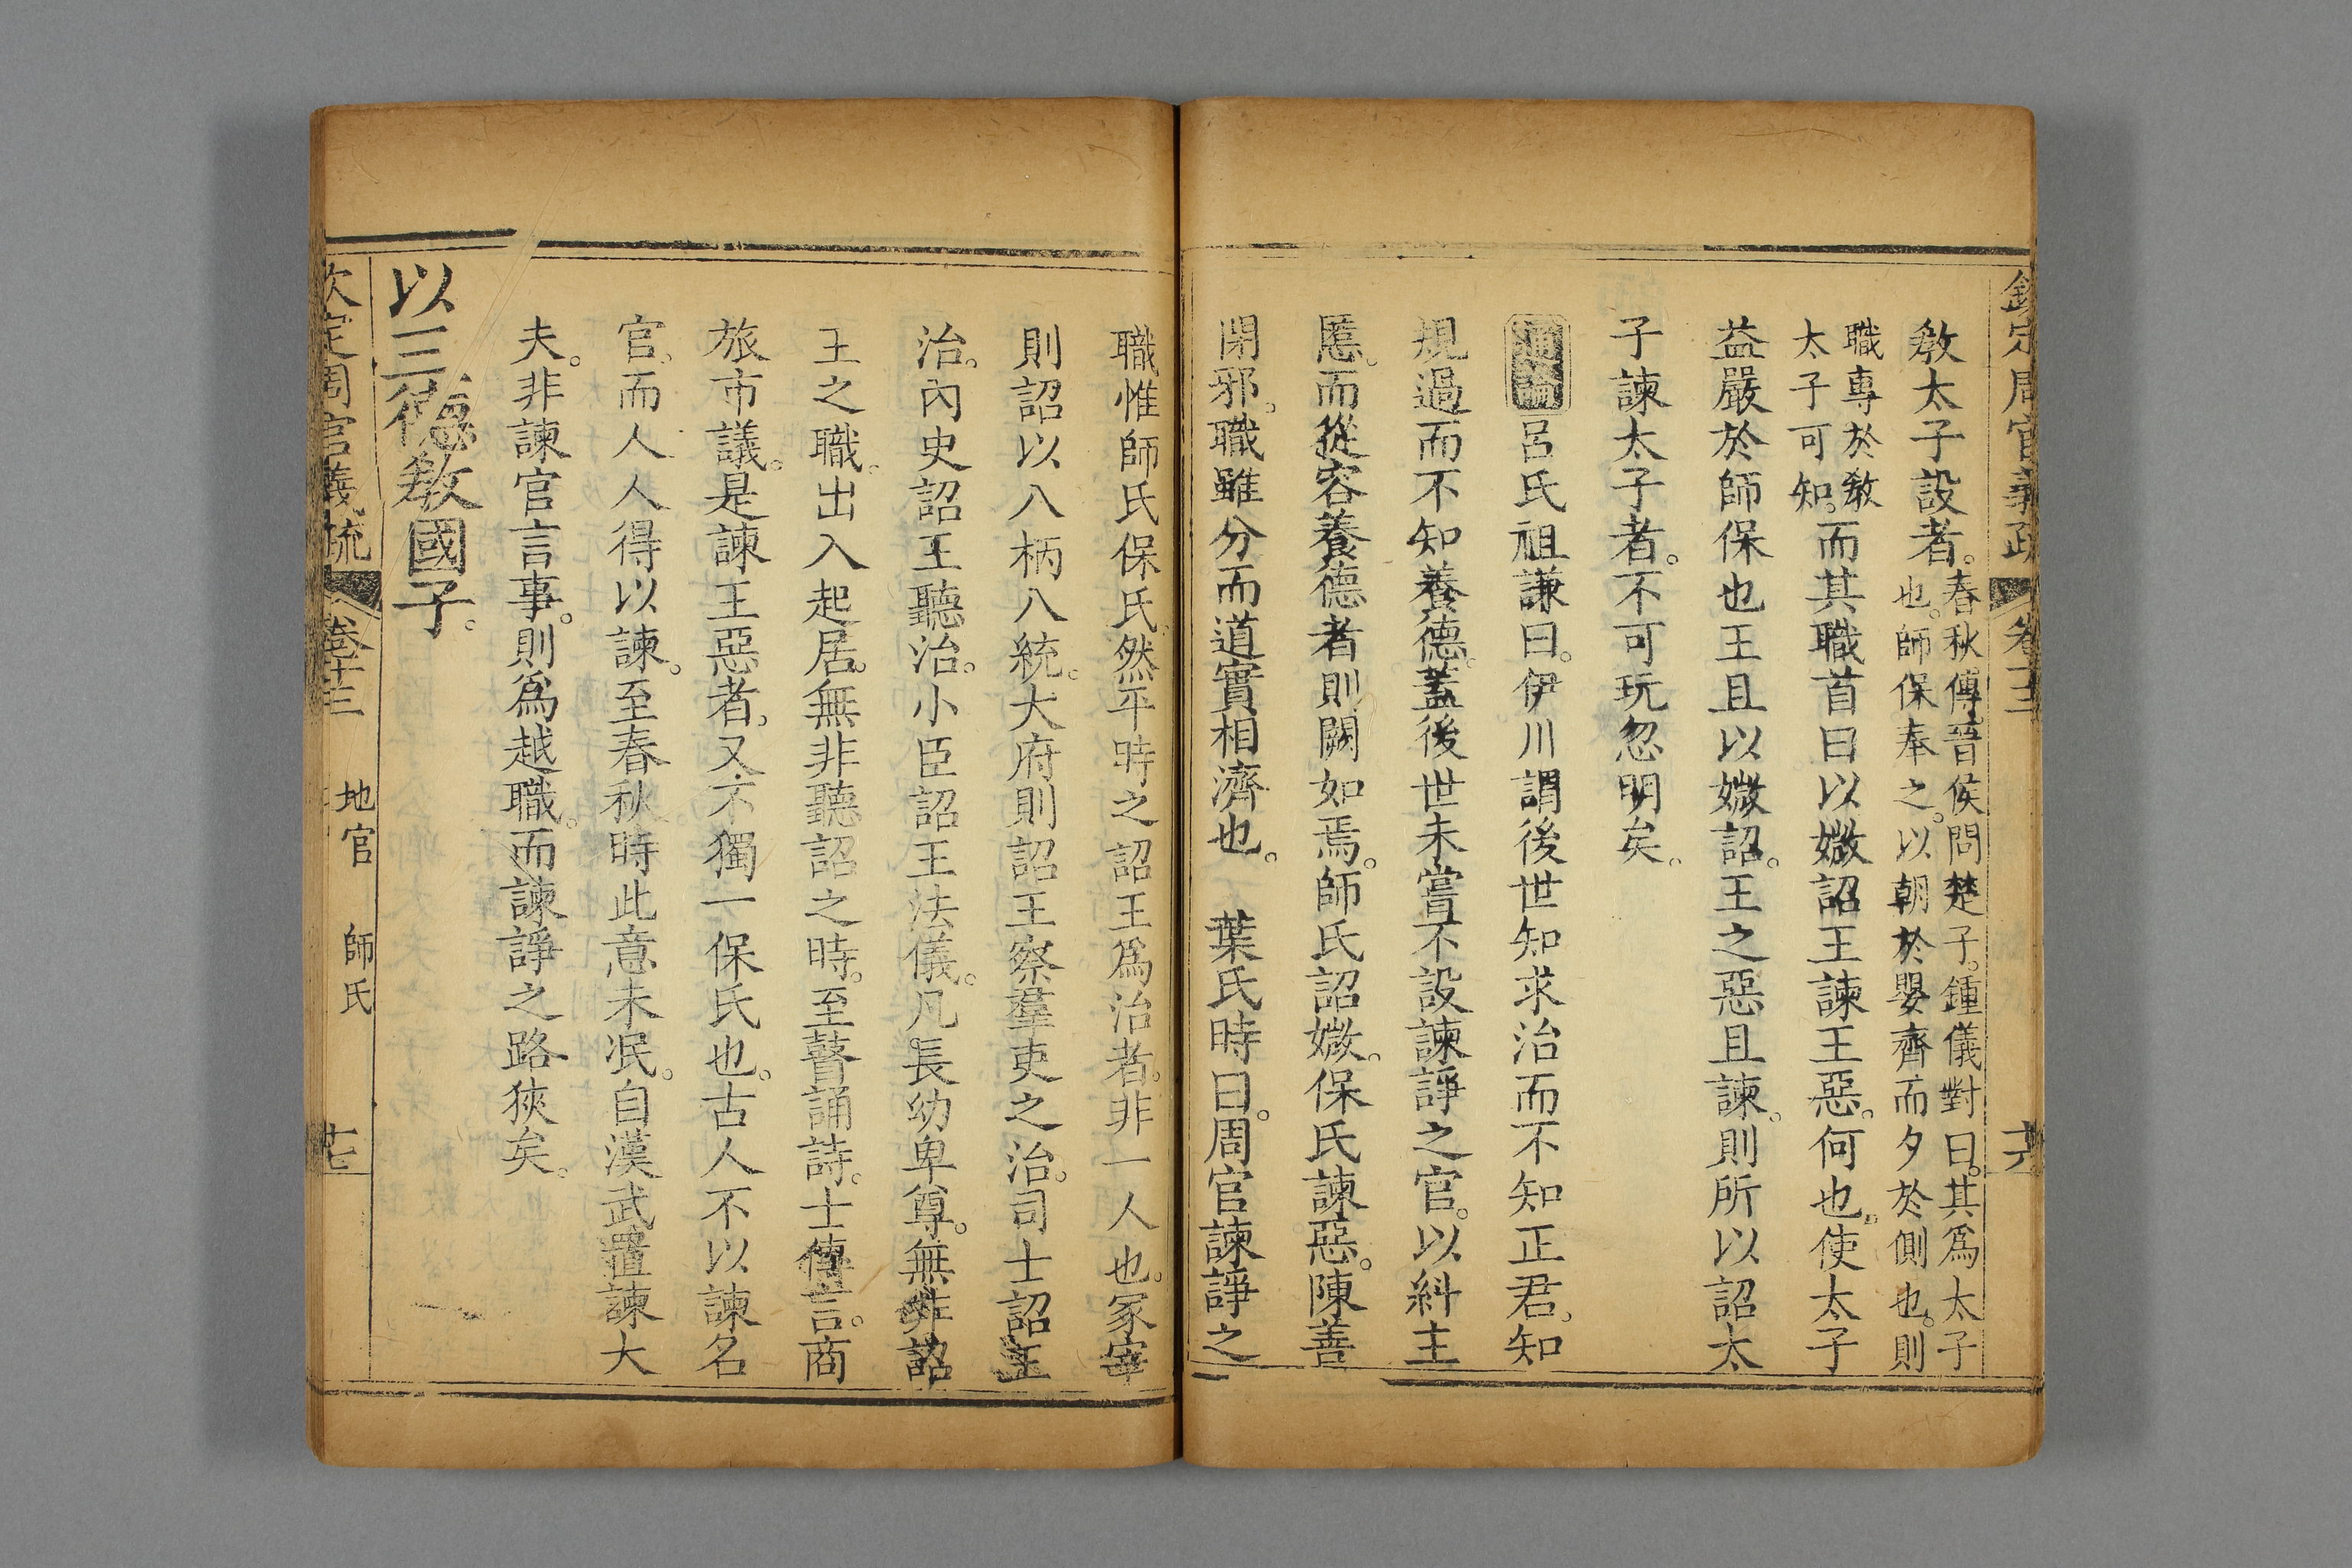 欽定周官義疏 卷十三 十六
教太子設者。春秋傳晉侯問楚子。鍾儀對曰。其爲太子
也。師保奉之。以朝於嬰齊而夕於側也。則
職專於教
太子可知。而其職首曰以媺詔王諫王惡。何也。使太子
益嚴於師保也王且以媺詔。王之惡且諫。則所以詔太
子諫太子者。不可玩忽明矣。
通論呂氏祖謙曰。伊川謂後世知求治而不知正君。知
規過而不知養德。蓋後世未嘗不設諫諍之官。以糾主
慝。而從容養德者則闕如焉。師氏詔媺。保氏諫惡。陳善
閉邪。職雖分而道實相濟也。 葉氏時曰。周官諫諍之
職惟師氏保氏。然平時之詔王爲治者。非一人也。冢宰
則詔以八柄八統。大府則詔王察羣吏之治。司士詔王
治。內史詔王聽治。小臣詔王法儀。凡長幼卑尊。無非詔
王之職。出入起居。無非聽詔之時。至瞽誦詩。士傳言。商
旅市議。是諫王惡者。又不獨一保氏也。古人不以諫名
官。而人人得以諫。至春秋時此意未泯。自漢武置諫大
夫。非諫官言事。則爲越職。而諫諍之路狹矣。
以三德敎國子。
欽定周官義疏 卷十三 地官 師氏 十七